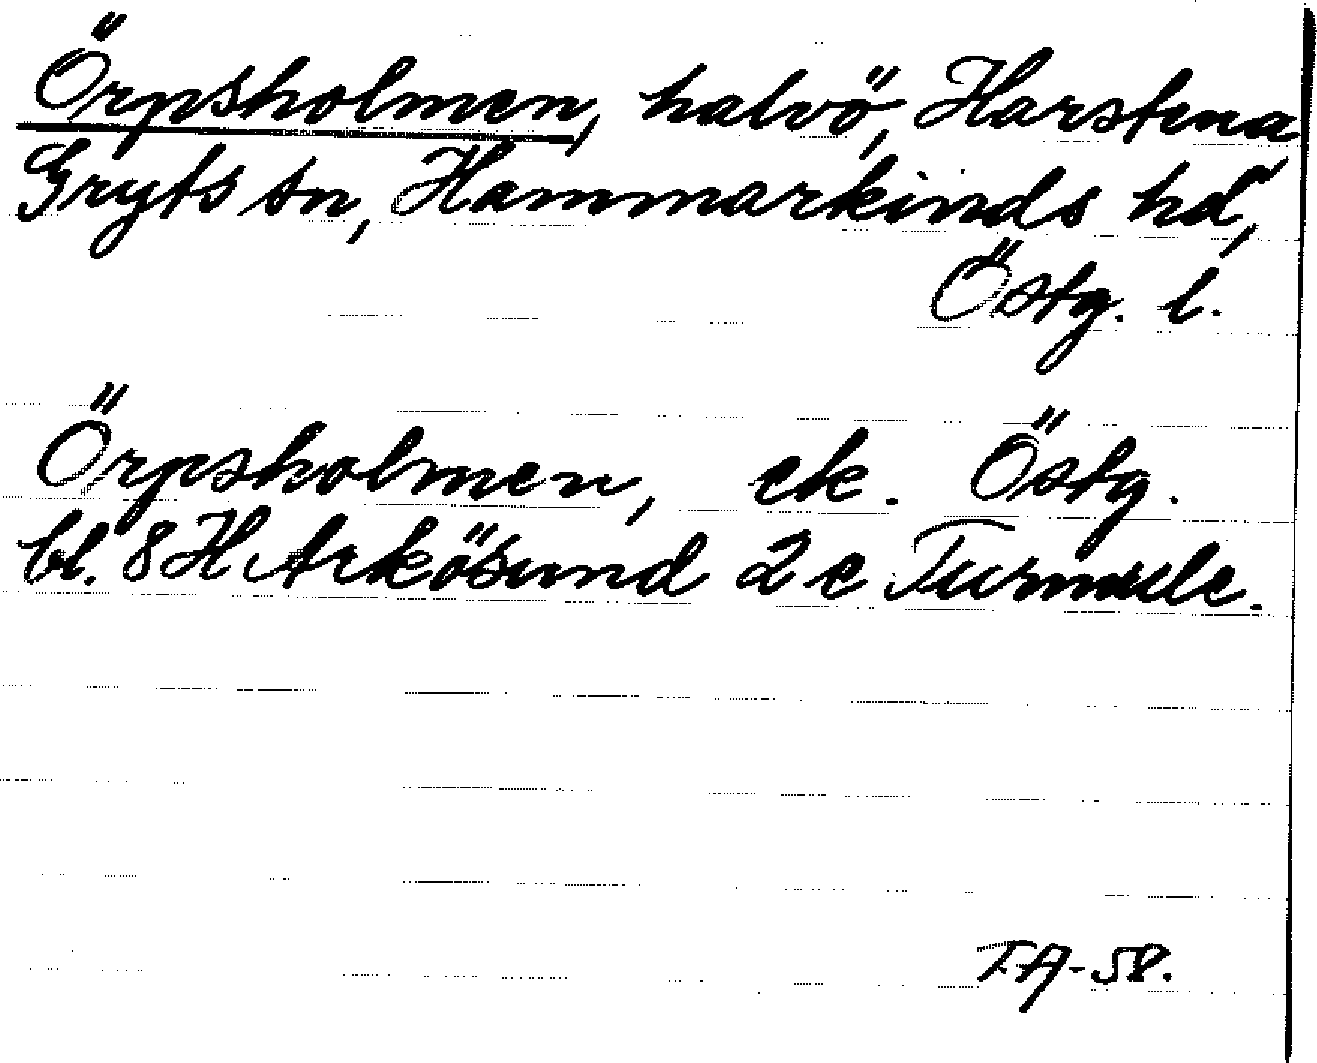 Örpsholmen, halvö, Harstena,
Gryts sn, Hammarkinds hd,
Östg. l.
Örpsholmen, ek. Östg.
bl. 8 H Arkösund 2 c Turmule.
TA-58.